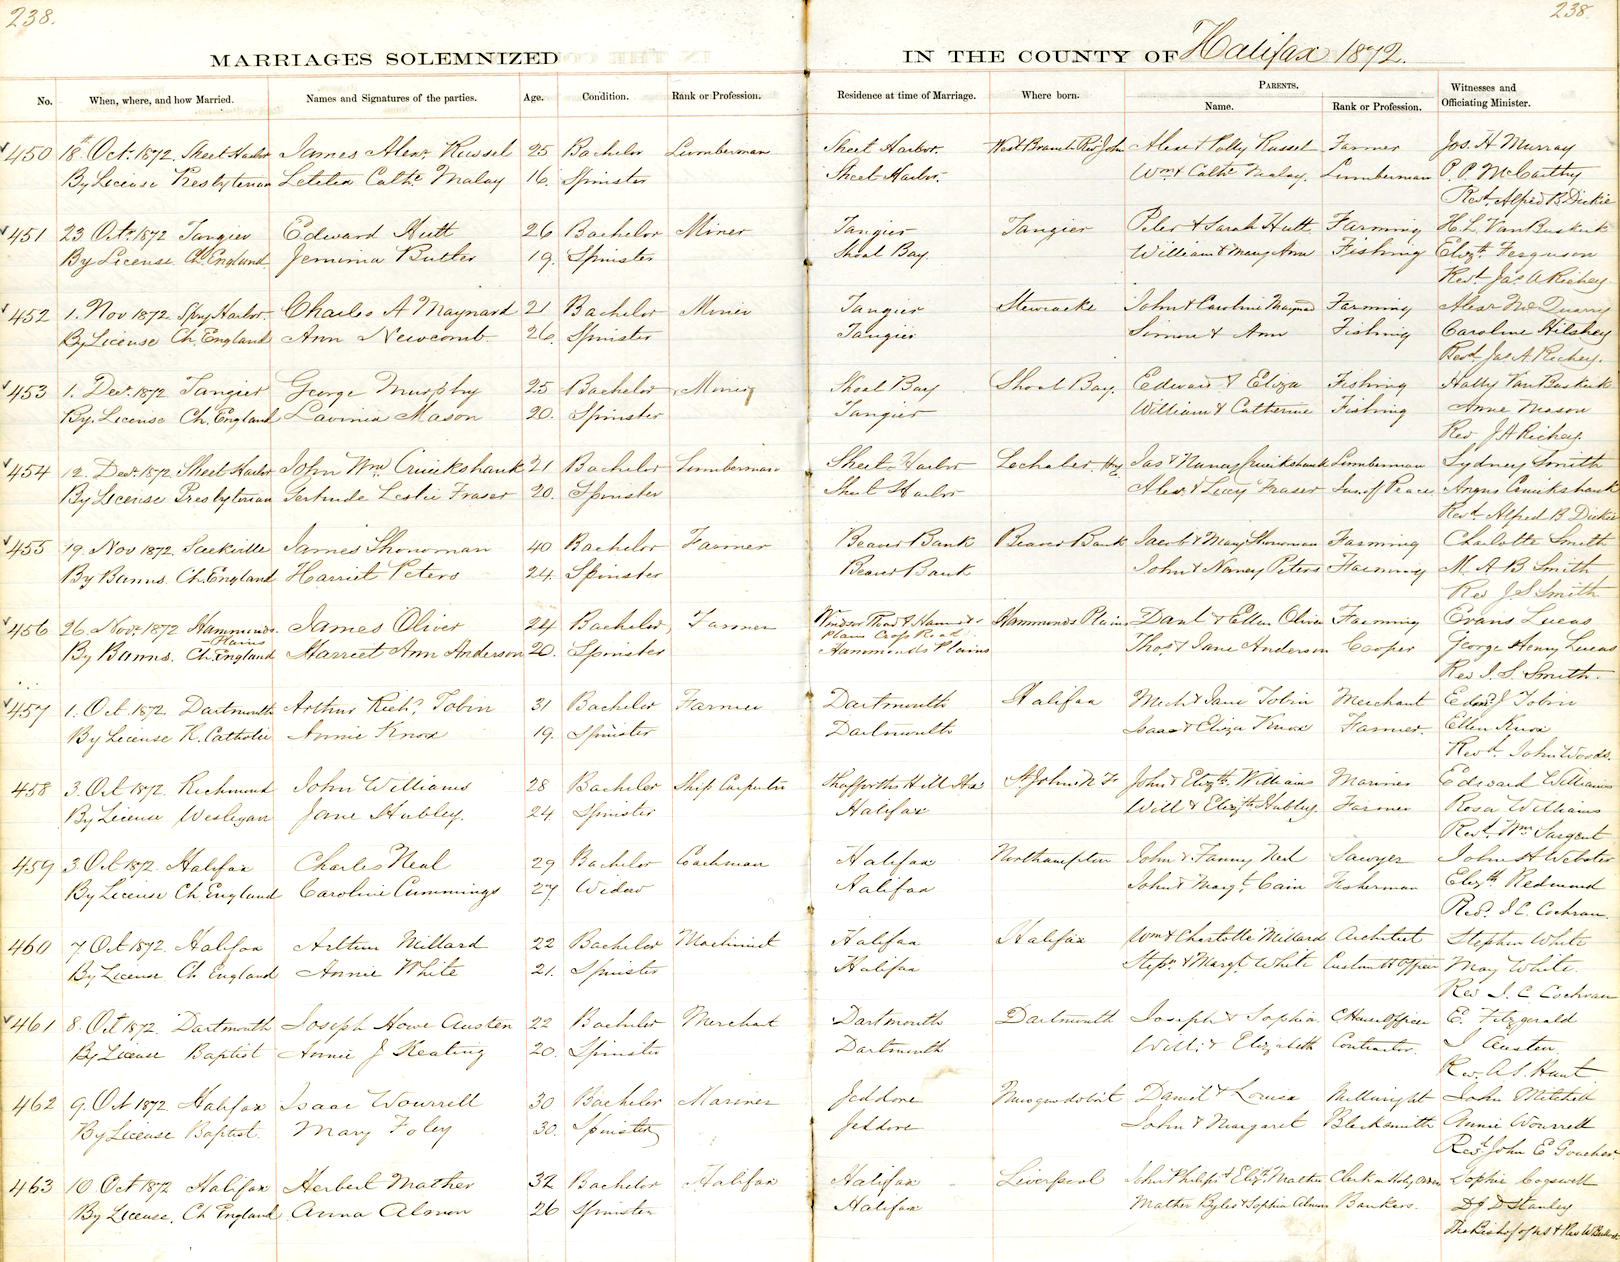 238.
238.
MARRIAGES SOLEMNIZED IN THE COUNTY OF Halifax 1872.
No. When, where, and how Married. Names and Signatures of the parties. Age. Condition. Rank or Profession. Residence at time of Marriage. Where born. PARENTS. Name. Rank or Profession. Witnesses and Officiating Minister.
450 18th Oct. 1872. Sheet Harbor James Alexr. Russel 25 Bachelor Lumberman Sheet Harbor. West Branch River John Alexr & Polly Russel Farmer Jos. H Murray
By License Presbyterian Letitia Cathe. Malay 16. Spinster Sheet Harbor. Wm & Cathe Malay. Lumberman P. P. McCarthy
Revd. Alfred B. Dickie
451 23 Octr. 1872 Tangier Edward Hutt 26 Bachelor Miner Tangier Tangier Peter & Sarah Hutt Farming H. L. VanBuskirk
By License Ch. England Jemima Butler 19. Spinster Shoal Bay. William & Mary Ann Fishing Elizth. Ferguson
Revd. Jas. A Richey
452 1. Nov 1872 Spry Harbor. Charles A Maynard 21 Bachelor Miner Tangier Stewiacke John & Caroline Maynard Farming Alexr McQuarry
By License Ch. England Ann Newcomb 26. Spinster Tangier Simon & Ann Fishing Caroline Hilshey
Revd. Jas A Richey.
453 1. Decr. 1872 Tangier George Murphy 25 Bachelor Miner Shoal Bay Shoal Bay. Edward & Eliza Fishing Hatty VanBuskirk
By. License Ch. England Lavinia Mason 20. Spinster Tangier William & Catherine Fishing Anne Mason
Rev J A Richey.
454 12. Decr. 1872 Sheet Harbor John Wm. Cruickshank 21 Bachelor Lumberman Sheet Harbor Jas & Nancy Cruickshank Lumberman Sydney Smith
By License Presbyterian Gertrude Leslie Fraser 20. Spinster Sheet Harbor Alexr. & Lucy Fraser Jus. of Peace Angus Cruickshank
Revd. Alfred B Dickie
455 19. Nov 1872 Sackville James Shonoman 40 Bachelor Farmer Beaver Bank Beaver Bank Jacob & Mary Shonoman Farming Charlotte Smith
By Banns. Ch. England Harriet Peters 24. Spinster Beaver Bank John & Nancy Peters Farming M A B Smith
Rev J. S Smith
456 26. Novr. 1872 Hammonds Plains James Oliver 24 Bachelor Farmer Windsor Road & Hammds Plains Cross Road Hammonds Plains Danl & Ellen Oliver Farming Evans Lucas
By Banns. Ch. England Harriet Ann Anderson 20. Spinster Hammonds Plains Thos. & Jane Anderson Cooper George Henry Lucas
Rev J. S. Smith.
457 1. Oct. 1872 Dartmouth Arthur Richd. Tobin 31 Bachelor Farmer Dartmouth Halifax Michl & Jane Tobin Merchant Edmd J Tobin
By License R. Catholic Annie Knox 19. Spinster Dartmouth Isaac & Eliza Knox Farmer. Ellen Knox
Revd. John Woods.
458 3. Oct 1872. Richmond John Williams 28 Bachelor Ship Carpenter St. Johns N F John & Elizth. Williams Mariner Edward Williams
By License Wesleyan Jane Hubley. 24 Spinster Halifax Will & Elizth Hubley. Farmer Rosa Williams
Revd. Wm. Sargent
459 3. Oct 1872. Halifax Charles Neal 29 Bachelor Coachman Halifax Northampton John & Fanny Neal Sawyer John H Webster
By License Ch. England Caroline Cummings 27. Widow Halifax John & Margt. Cain Fisherman Elizth Redmond
Revd. J. C. Cochran.
460 7 Oct 1872. Halifax Arthur Millard 22 Bachelor Machinist Halifax Halifax Wm & Charlotte Millard Architect Stephen White
By License Ch England Annie White 21. Spinster Halifax Stepn. & Margt. White Custom H Officer May White.
Rev J. C. Cochran
461 8. Oct 1872. Dartmouth Joseph Howe Austen 22 Bachelor Merchat Dartmouth Dartmouth Joseph & Sophia C House Officer E. Fitzgerald
By License Baptist Annie J Keating 20. Spinster Dartmouth Willi. & Elizabeth Contractor. J Austen
Rev. A S. Hunt
462 9. Oct 1872 Halifax Isaac Wourrell 30 Bachelor Mariner Jeddore Musquodoboit Daniel & Louisa Millwright John Mitchell
By License Baptist. Mary Foley 30. Spinster Jeddore John & Margaret Blacksmith Annie Wourrell
Revd. John E Goucher.
463 10 Oct 1872 Halifax Herbert Mather 32 Bachelor Halifax Halifax Liverpool John Philips & Elizth. Mather Clerk in Holy Orders Sophie Cogswell
By License. Ch England Anna Almon 26 Spinster Halifax Mather Byles & Sophia Almon Bankers. D J D Stanley
The Bishop of NS & Rev W Bullock